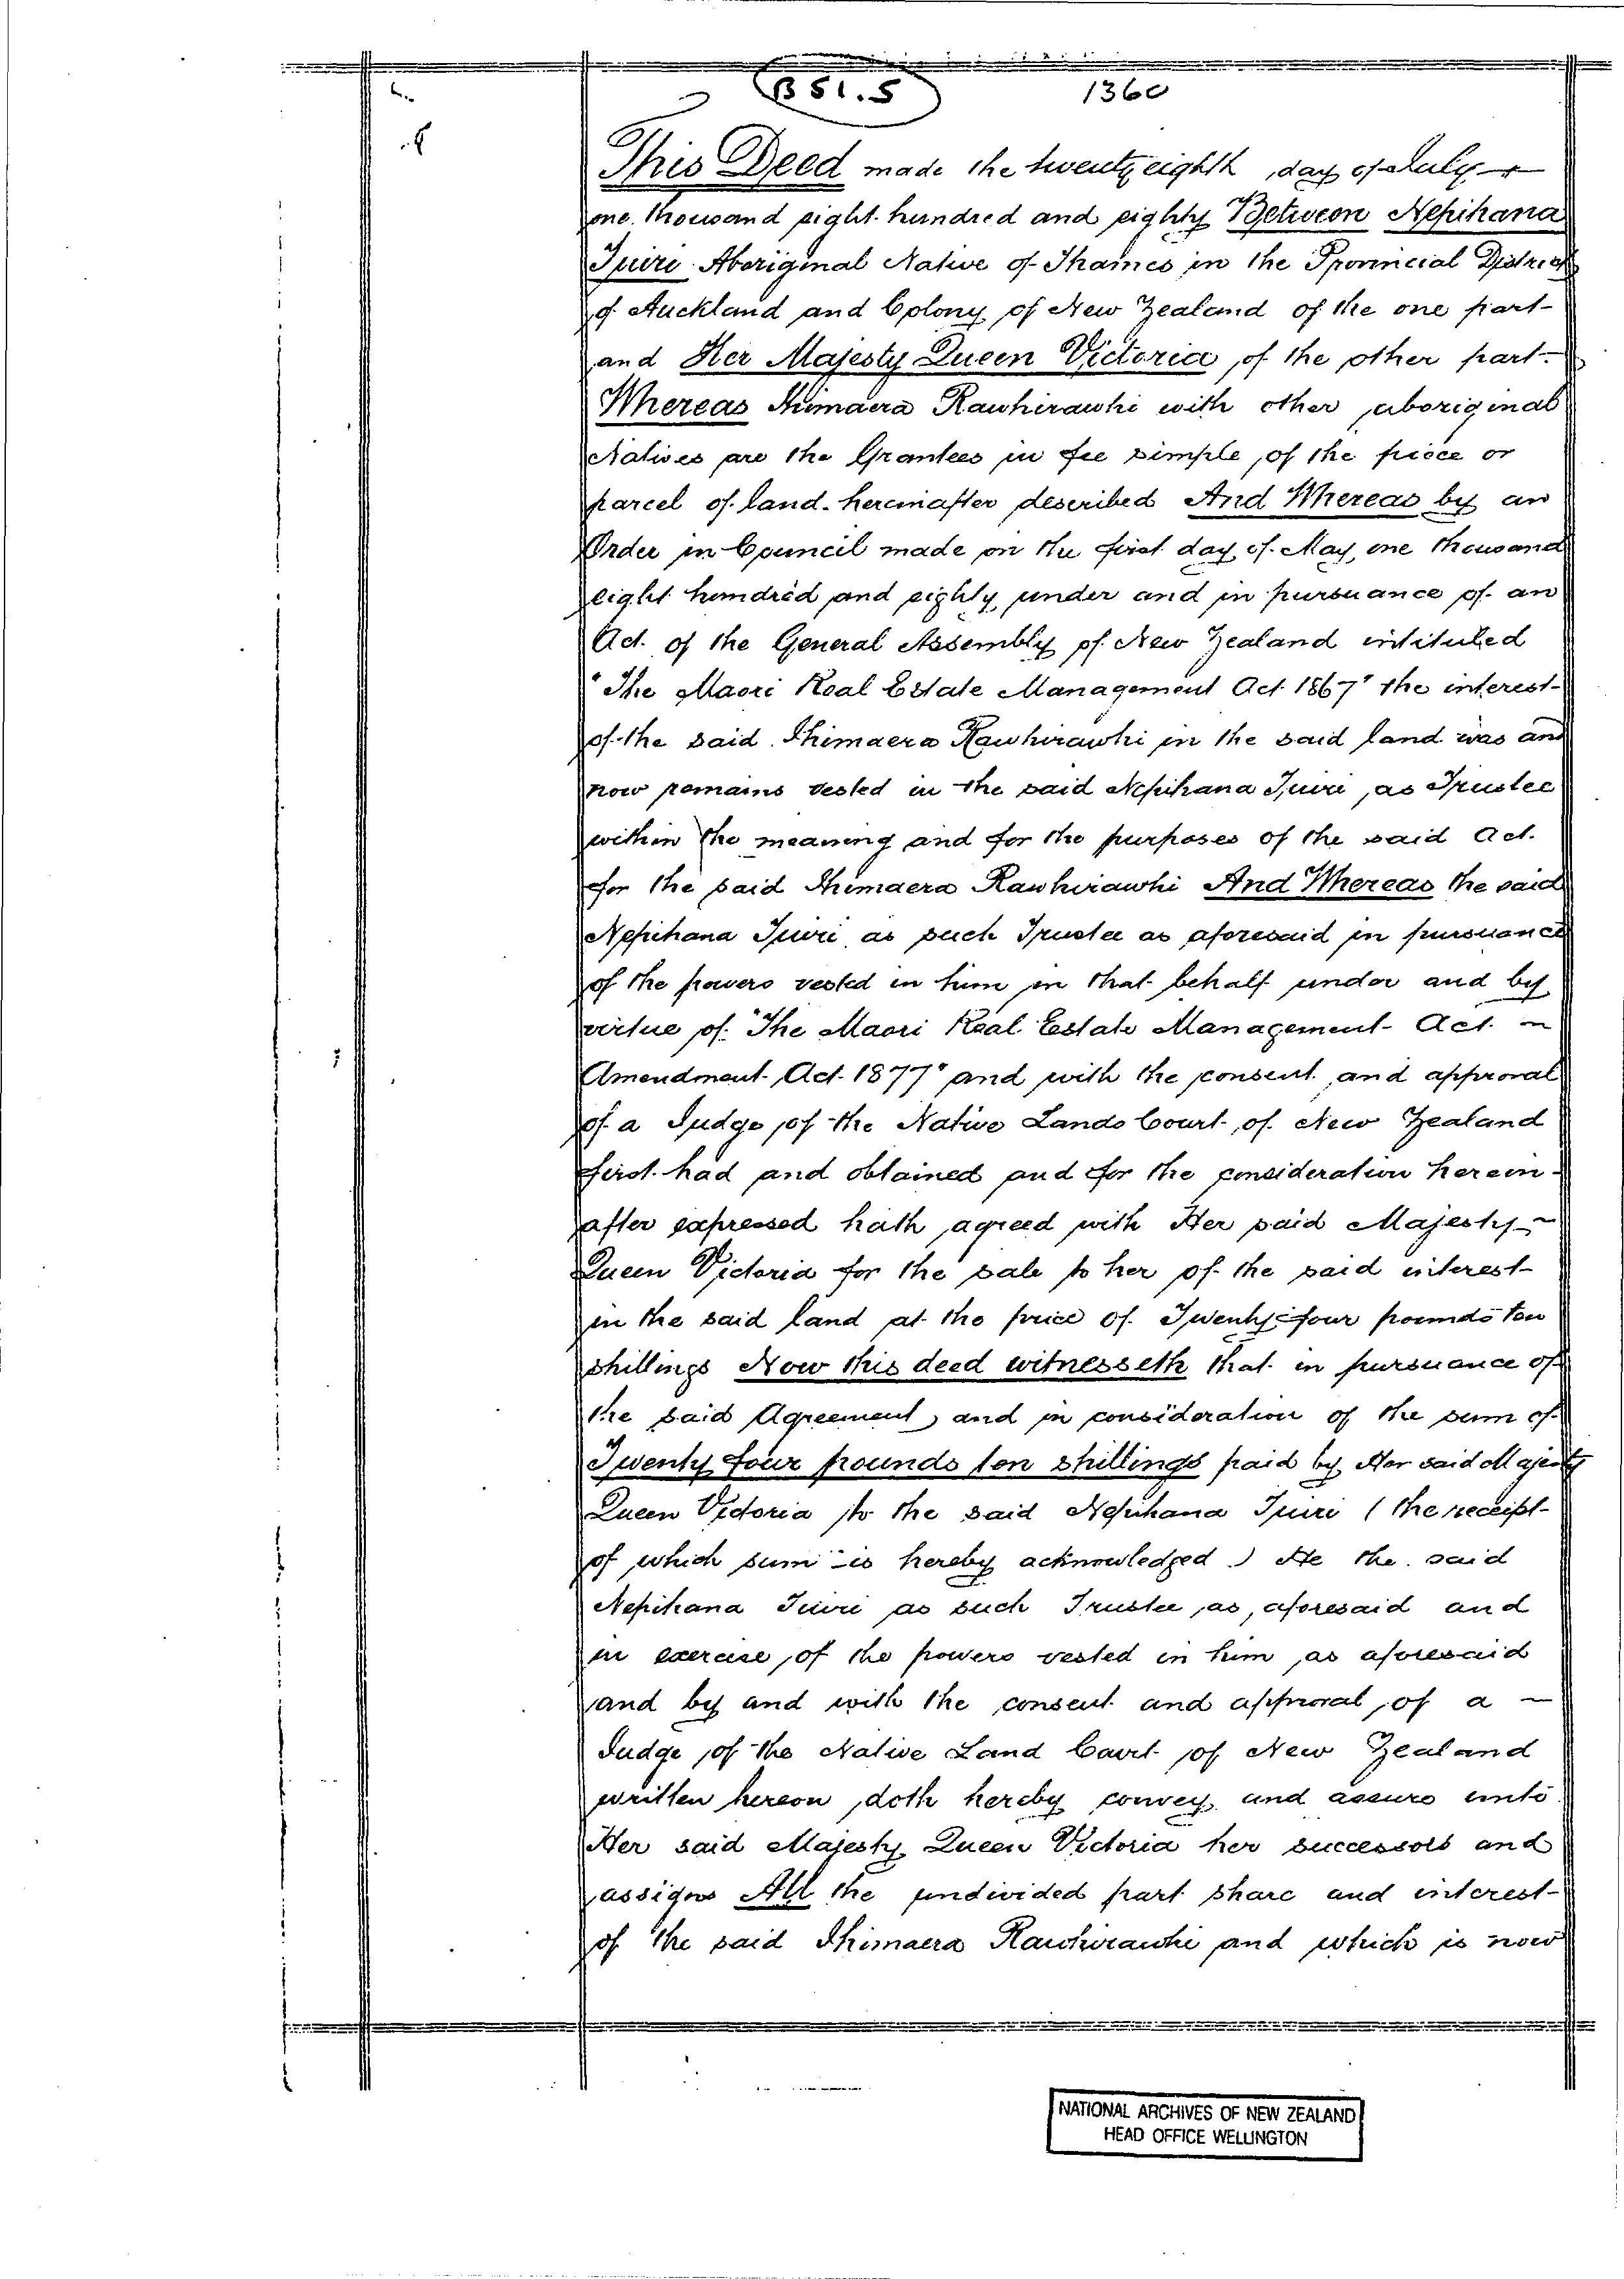 B 51.5
1360
This Deed made the twenty eighth day of July
one thousand eight hundred and eighty Between Nepihana
Tuiri Aboriginal Native of Thames in the Provincial District
of Auckland and Colony of New Zealand of the one part
and Her Majesty Queen Victoria of the other part
Whereas Ihimaera Rawhirawhi with other aboriginal
Natives are the Grantees in fee simple of the piece or
parcel of land hereinafter described And Whereas by an
Order in Council made on the first day of May one thousand
eight hundred and eighty under and in pursuance of an
Act of the General Assembly of New Zealand intituled
"The Maori Real Estate Management Act 1867" the interest
of the said Ihimaera Rawhirawhi in the said land was and
now remains vested in the said Nepihana Tuiri as Trustee
within the meaning and for the purposes of the said Act
for the said Ihimaera Rawhirawhi And Whereas the said
Nepihana Tuiri as such Trustee as aforesaid in pursuance
of the powers vested in him in that behalf under and by
virtue of "The Maori Real Estate Management Act
Amendment Act 1877" and with the consent and approval
of a Judge of the Native Lands Court of New Zealand
first had and obtained and for the consideration herein-
after expressed hath agreed with Her said Majesty
Queen Victoria for the sale to her of the said interest
in the said land at the price of Twenty four pounds ten
shillings Now this deed witnesseth that in pursuance of
the said Agreement and in consideration of the sum of
Twenty four pounds ten shillings paid by Her said Majesty
Queen Victoria to the said Nepihana Tuiri (the receipt
of which sum is hereby acknowledged) He the said
Nepihana Tuiri as such Trustee as aforesaid and
in exercise of the powers vested in him as aforesaid
and by and with the consent and approval of a
Judge of the Native Land Court of New Zealand
written hereon doth hereby convey and assure unto
Her said Majesty Queen Victoria her successors and
assigns All the undivided part share and interest
of the said Ihimaera Rawhirawhi and which is now
NATIONAL ARCHIVES OF NEW ZEALAND
HEAD OFFICE WELLINGTON